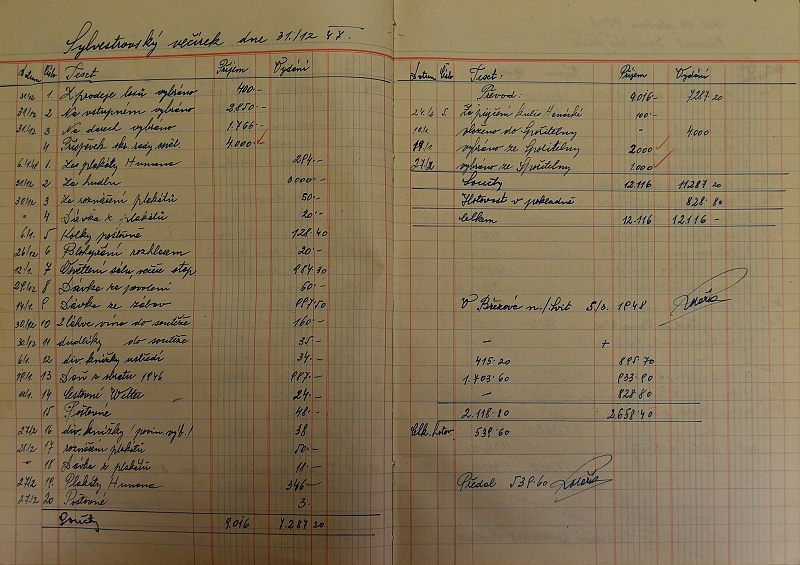 Sylvestrovský večírek dne 31./12 47.
Datum Číslo Text Příjem Vydání
31/12 1. Z prodeje losů vybráno 400.-
31/12 2 Na vstupném vybráno 2.850.-
31/12 3 Na darech vybráno 1.766.-
4 Příspěvek 4.000.-
6/1.48 1. Za plakáty Humana 294.-
31/12 2 Za hudbu 3000.-
30/12 3 Za roznášení plakátů 50.-
" 4 Dávka z plakátů 20.-
6/1. 5 Kolky poštovné 128.40
26/12 6 rozhlasem 20.-
12/1. 7 Osvětlení sálu, 984.30
29/12 8 Dávka za povolení 60.-
14/1. 9 Dávka ze zábav 997.50
30/12 10 2 láhve vína do soutěže 160.-
30/12 11 dudlíky do soutěže 35.-
6/1. 12 div. knížky ústředí 34.-
19/1. 13 Daň z obratu 1946 997.-
14 Cestovné 24.-
15 Poštovné 48.-
27/2 16 div. knížky /povin. výt./ 38
28/2 17 roznášení plakátů 50.-
" 18 Dávka z plakátů 18.-
27/2 19. Plakáty Humana 346.-
27/2 20 Poštovné 3.
Součty 9.016 7.287 20
Datum Číslo Text: Příjem Vydání
Převod: 9.016- 7287 20
5. Za půjčení kulis Hanácké 100.-
vloženo do Spořitelny - 4.000
19/2 vybráno ze Spořitelny 2000
27/2 vybráno ze Spořitelny 1.000
Součty 12.116 11.287 20
Hotovost v pokladně 828.80
Celkem 12.116 12.116 -
V Březové n./Svit 5/3. 1948
- +
415.20 895.70
1.703.60 933.90
- 828.80
2.118.80 2.658.40
Celk. hotov. 539.60
Předal 539.60